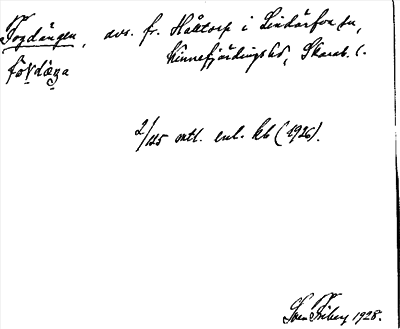 Fogdängen, avs. fr. Hålltorp i Lindärfva sn,
Kinnefjärdings hd, Skarab. l.
2/125 mtl. enl. kb (1926).
Sven Friberg 1928.